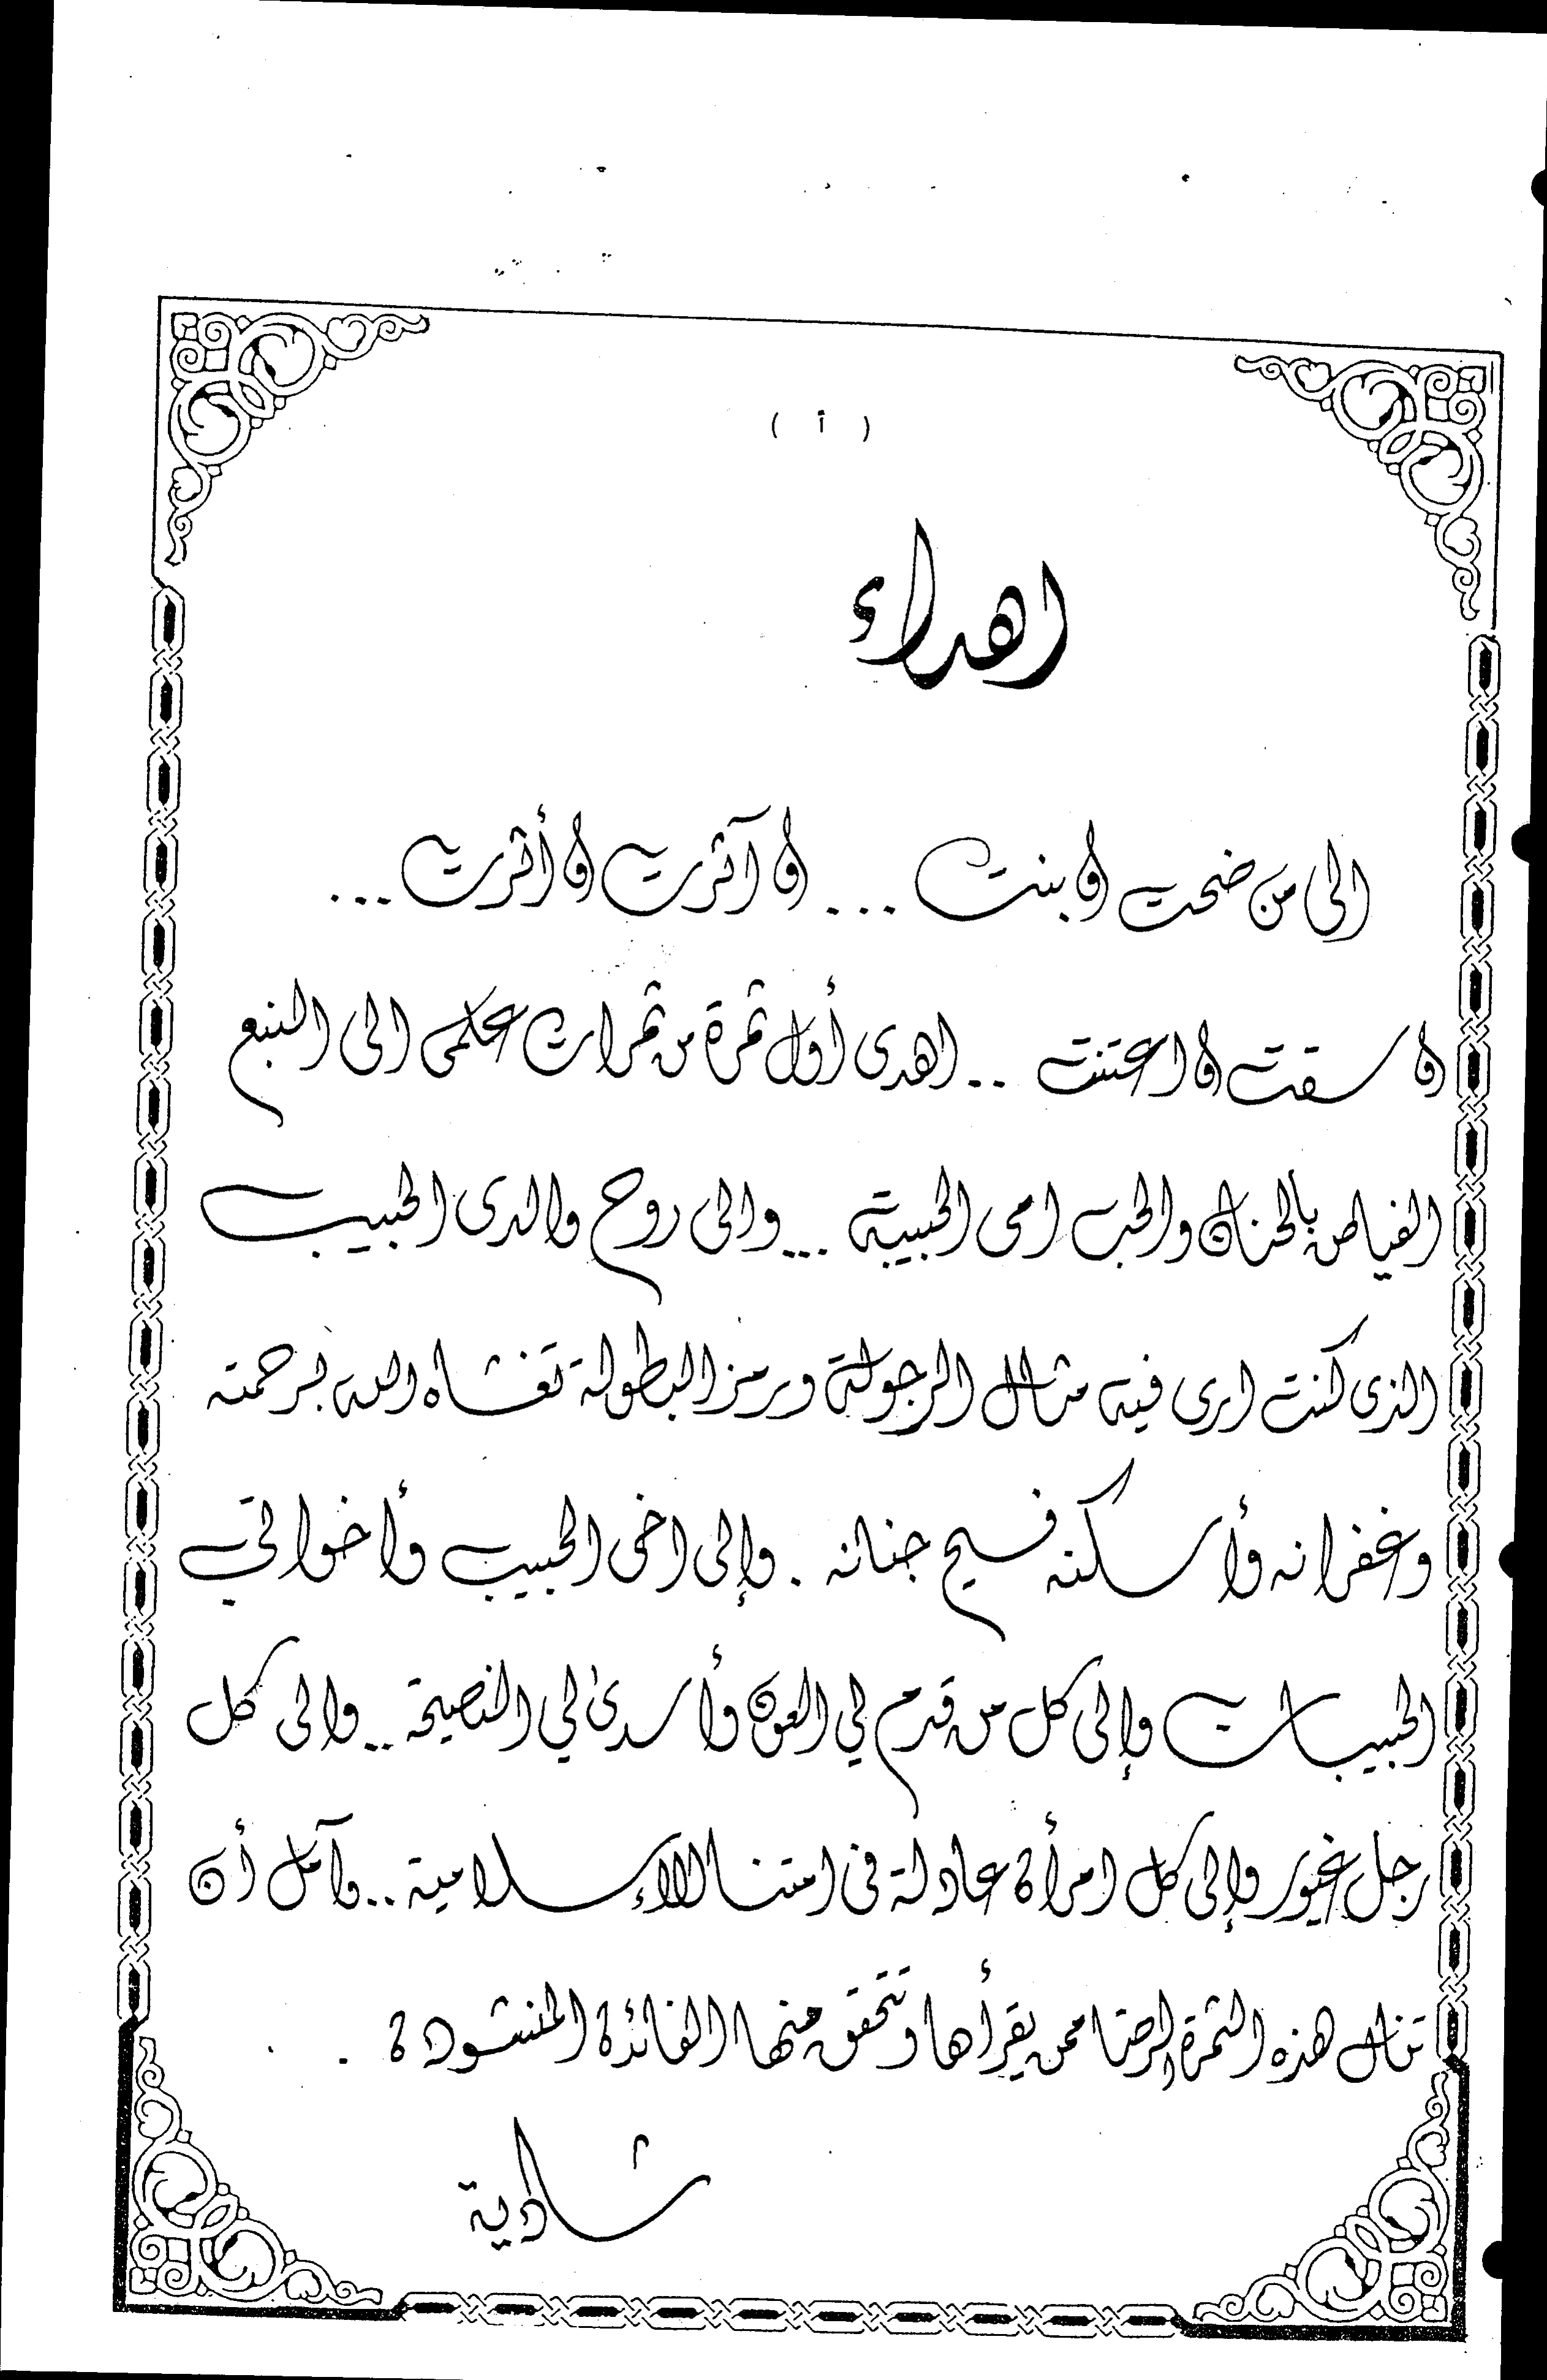 ( أ )
اهداء
الى من ضحت و بنت ... و آثرت و أثرت ...
و سقت و اعتنت .. اهدى أول ثمرة من ثمرات علمى الى المنبع
الفياض بالحنان والحب امى الحبيبة ... والى روح والدى الحبيب
الذى كنت ارى فيه مثال الرجولة ورمز البطولة تغشاه الله برحمته
وغفرانه وأسكنه فسيح جنانه . وإلى اخى الحبيب وأخواتي
الحبيبات وإلى كل من قدم لي العون وأسدىٰ لي النصيحة .. والى كل
رجل غيور وإلى كل امرأة عادلة فى امتنا الاءسلامية .. وآمل أن
تنال هذه الثمرة الرضا ممن يقرأها وتتحقق منها الفائدة المنشودة .
شادية